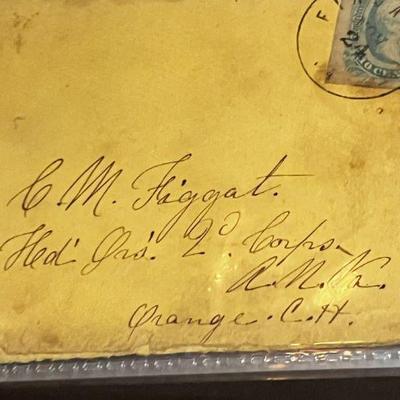 F
10 CEN
C. M. Figgat.
Hed' Qrs'. 2d. Corps
A. N. Va.
Orange. C. H.